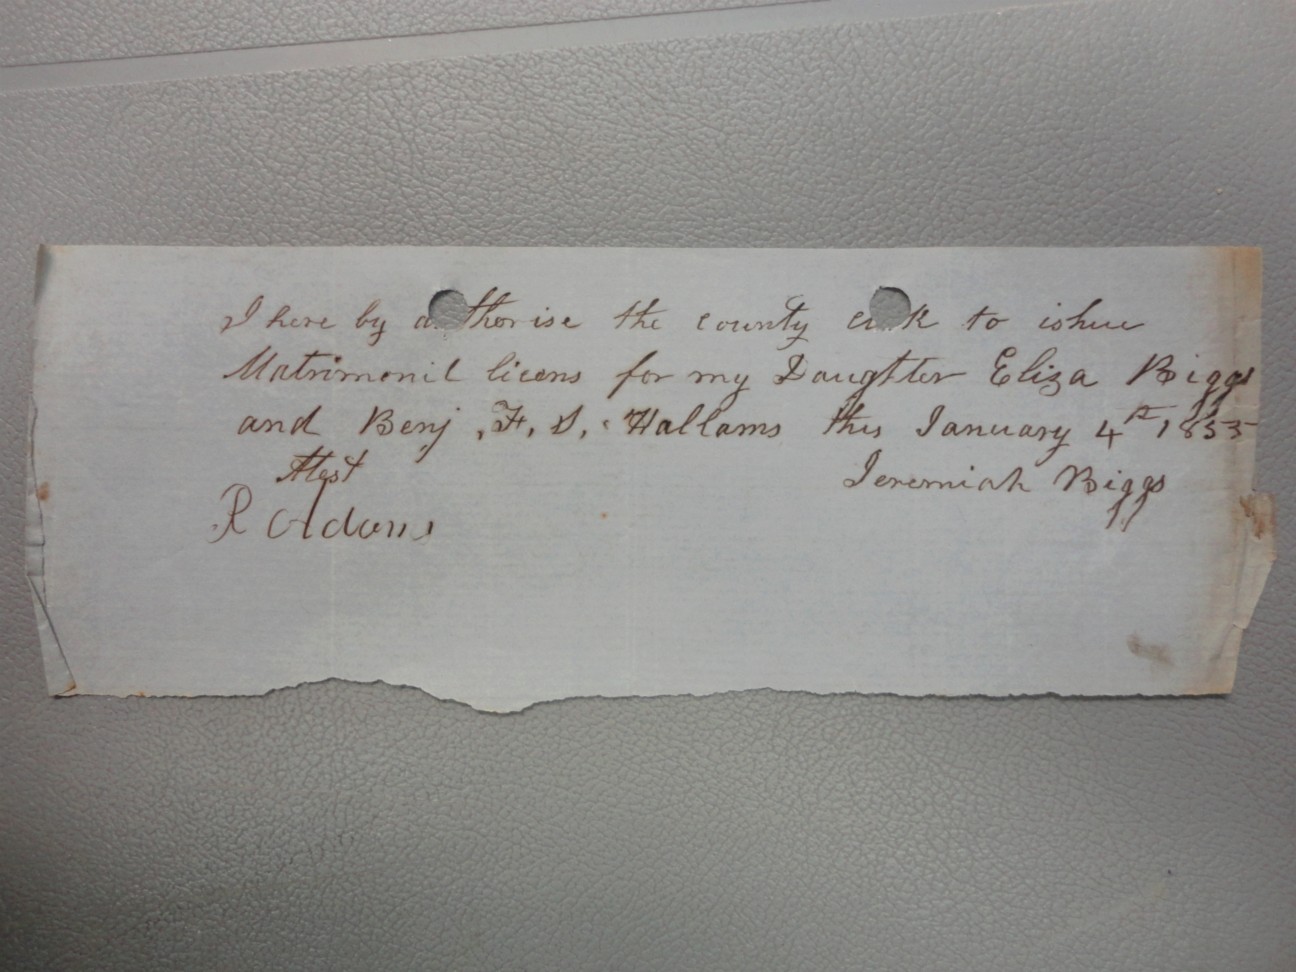 I here by a thorise the county c k to ishue
Matrimonil licens for my Daughter Eliza Biggs
and Benj , F, S, Hallams this January 4th 1855
Attest Jeremiah Biggs
R Adams